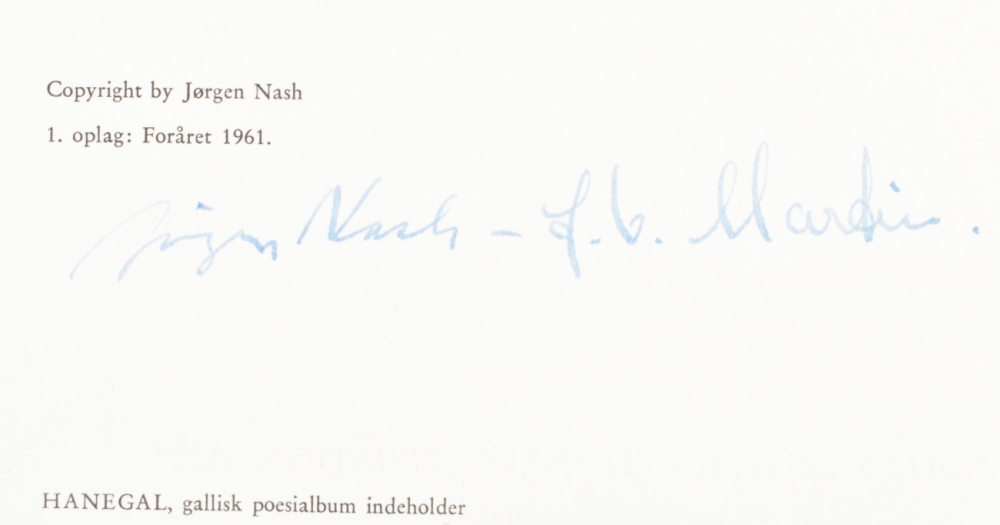 Copyright by Jørgen Nash
1. oplag: Foråret 1961.
Jørgen Nash - J. V. Martin.
HANEGAL, gallisk poesialbum indeholder